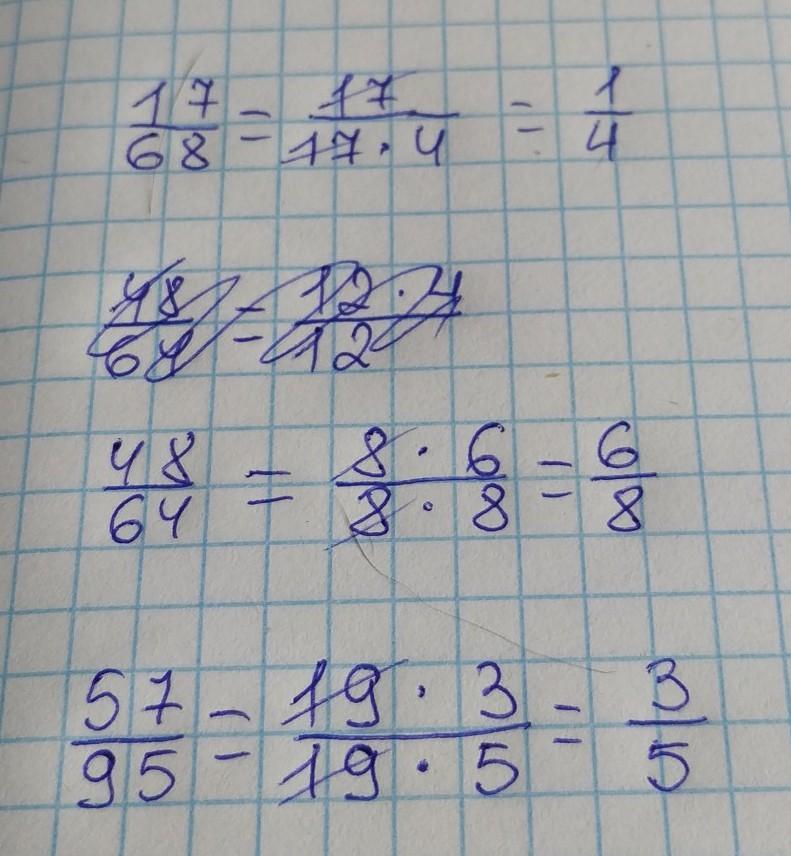 17/68 = 17/17·4 = 1/4
48/64 = 12·4/12
48/64 = 8·6/8·8 = 6/8
57/95 = 19·3/19·5 = 3/5